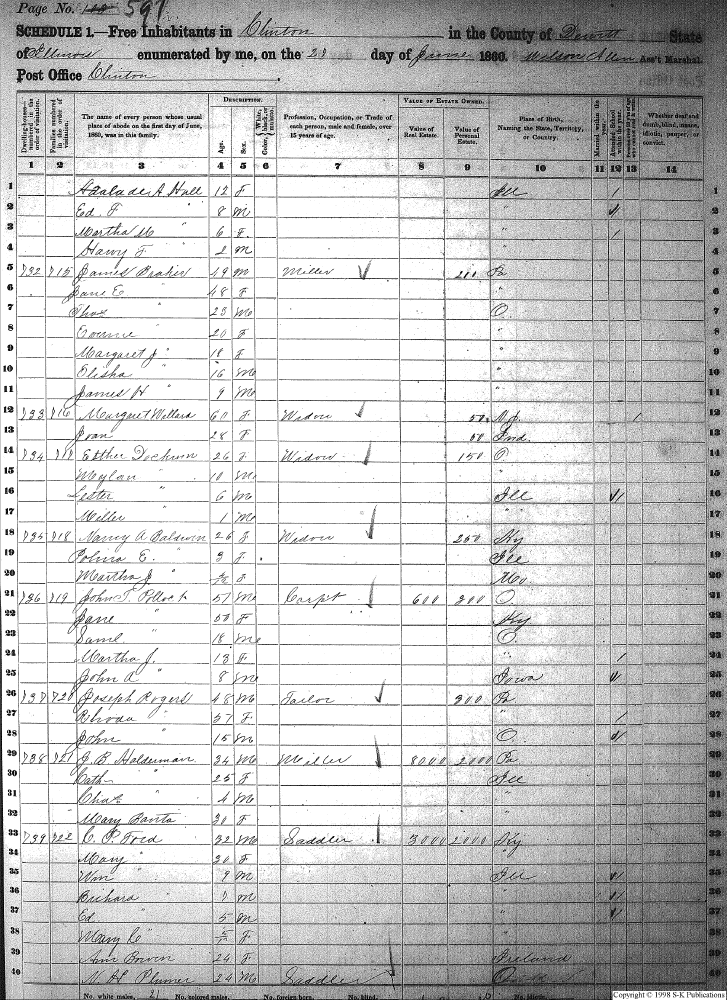 Page No. 597
SCHEDULE 1.—Free Inhabitants in Clinton in the County of Dewitt State
of Illinois enumerated by me, on the 21 day of June 1860. Wilson Allen Ass't Marshal.
Post Office Clinton
Dwelling-houses— numbered in the order of visitation.
Families numbered in the order of visitation.
The name of every person whose usual place of abode on the first day of June, 1860, was in this family.
DESCRIPTION.
Age.
Sex.
Color, White, black, or mulatto.
Profession, Occupation, or Trade of each person, male and female, over 15 years of age.
VALUE OF ESTATE OWNED.
Value of Real Estate.
Value of Personal Estate.
Place of Birth, Naming the State, Territory, or Country.
Married within the year.
Attended School within the year.
Whether deaf and dumb, blind, insane, idiotic, pauper, or convict.
1 2 3 4 5 6 7 8 9 10 11 12 13 14
1 A Hull 12 F Ill
2 Ed. F " 8 M " 2
3 Martha M " 6 F " 3
4 F " 2 M " 4
5 732 715 James 49 M Miller 200 Pa 5
6 Jane E " 48 F " 6
7 Thos " 23 M O. 7
8 " 20 F " 8
9 Margaret J " 18 F " 9
10 Elisha " 16 M " 10
11 James H " 9 M " 11
12 733 716 Margaret Willard 60 F Widow 50 12
13 Joan " 28 F 50 Ind. 13
14 734 717 Esther 26 F Widow 150 O 14
15 " 10 M " 15
16 Lester " 6 M Ill 16
17 Miller " 1 M " " 17
18 735 718 Nancy A Baldwin 26 F Widow 250 Ky 18
19 E. " 3 F Ill 19
20 Martha J " F Mo. 20
21 736 719 John S. Pollock 57 M Carpt 600 200 O. 21
22 Jane " 50 F Ky 22
23 Saml " 18 M O. 23
24 Martha J. " 13 F " 24
25 John A " 8 M Iowa 25
26 737 720 Joseph Rogers 48 M Tailor 300 Pa 26
27 Rhoda " 57 F " 27
28 John " 15 M O 28
29 738 721 J. B. Halderman 34 M Miller 8000 2000 Pa 29
30 Cath " 25 F Ill 30
31 Chas " 4 M " 31
32 Mary Banta 20 F " 32
33 739 722 C. P. Ford 32 M Saddler 3000 2000 Ky 33
34 Mary " 30 F " 34
35 Wm " 9 M Ill 35
36 Richard " 7 M " 36
37 Ed " 5 M " 37
38 Mary C " F " 38
39 Ann Bowen 24 F Ireland 39
40 Plumer 24 M Saddler 40
No. white males, 21 No. colored males. No. foreign born. No. blind.
Copyright © 1998 S-K Publications